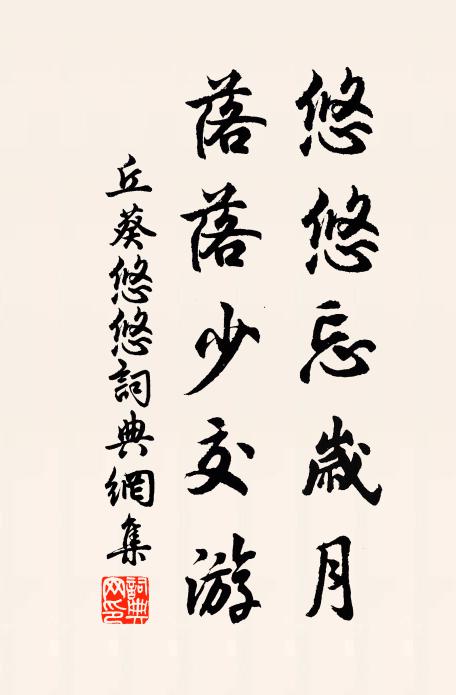 悠悠忘歲月
落落少交游
丘葵悠悠詞典網集
詞典網印